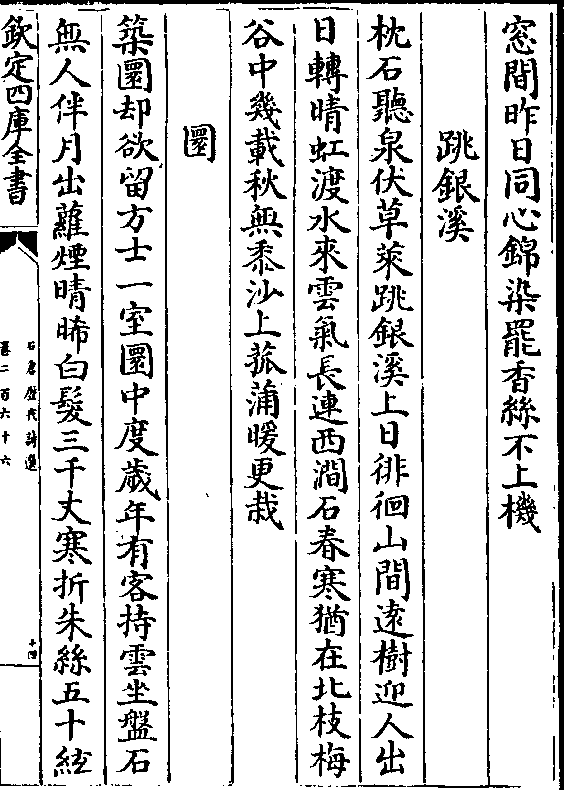 窓間昨日同心錦染罷香絲不上機
跳銀溪
枕石聽泉伏草萊跳銀溪上日徘徊山間逺樹迎人出
日轉晴虹渡水來雲氣長連西澗石春寒猶在北枝梅
谷中幾載秋無黍沙上菰蒲暖更栽
圜
築圜却欲留方士一室圜中度歲年有客持雲坐盤石
無人伴月出蘿煙晴晞白髮三千丈寒折朱絲五十絃
欽定四庫全書
石倉歴代詩選
卷二百六十六
十四